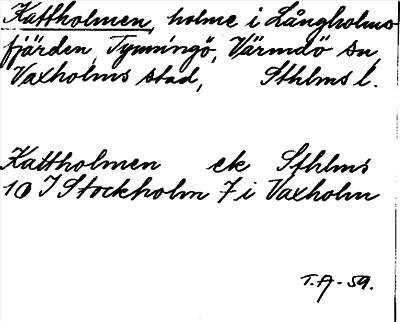 Kattholmen, holme i Långholms-
fjärden, Tynningö, Värmdö sn,
Vaxholms stad, Sthlms l.
Kattholmen ek Sthlms
10 I Stockholm 7 i Vaxholm
T.A-59.